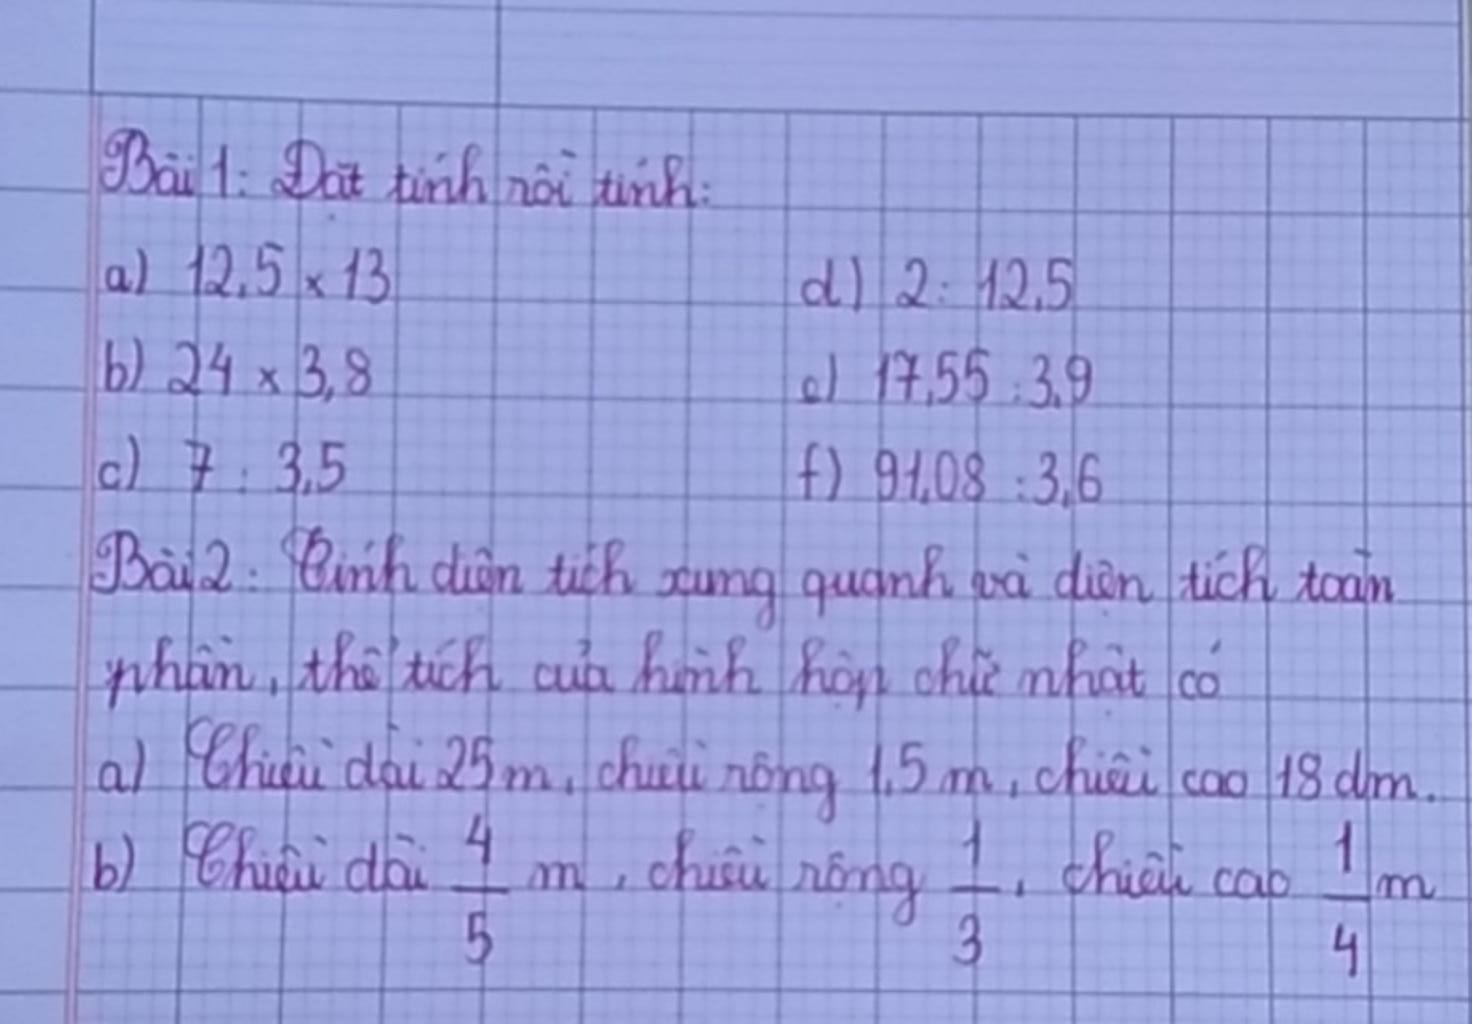 Bài 1: Đặt tính rồi tính:
a) 12,5 x 13 d) 2 : 12,5
b) 24 x 3,8 e) 17,55 : 3,9
c) 7 : 3,5 f) 91,08 : 3,6
Bài 2: Tính diện tích xung quanh và diện tích toàn
phần, thể tích của hình hộp chữ nhật có
a) Chiều dài 25 m, chiều rộng 1,5 m, chiều cao 18 dm.
b) Chiều dài 4/5 m, chiều rộng 1/3, chiều cao 1/4 m